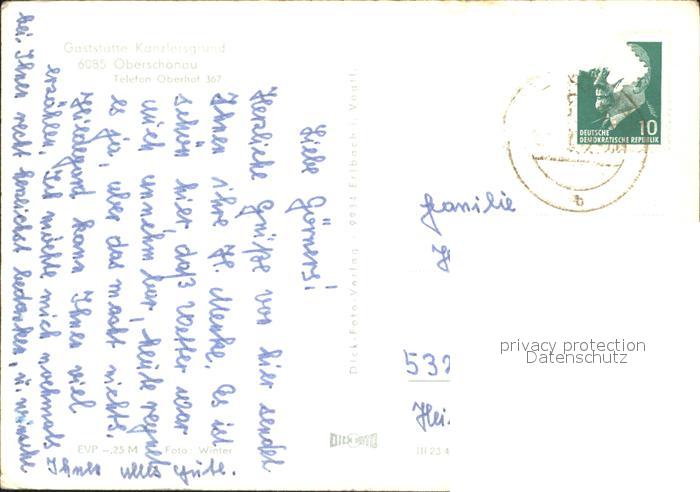 Gaststätte Kanzlersgrund
6085 Oberschönau
Telefon Oberhof 367
Liebe Görners!
Herzliche Grüße von hier sendet
Ihnen ihre H. Menke. Es ist
schön hier, daß Wetter war
auch annehmbar, heute regnet
es ja, aber das macht nichts.
Hildegard kann Ihnen viel
erzählen. Ich möchte mich nochmals
bei Ihnen recht herzlichst bedanken, u. wünsche
Ihnen alles gute.
EVP -,25 M
Foto: Winter
Dick-Foto-Verlag · 9934 Erlbach i. Vogtl.
DICK FOTO
III 23 4
DEUTSCHE
DEMOKRATISCHE REPUBLIK
10
b
Familie
532
Hei
privacy protection
Datenschutz